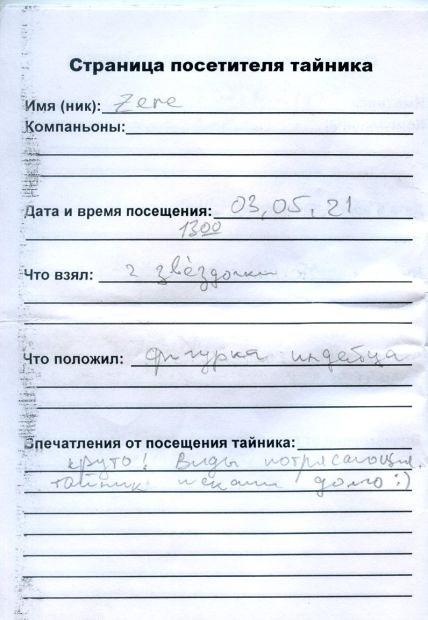 Страница посетителя тайника
Имя (ник): Zere
Компаньоны:
Дата и время посещения: 03,05,21
13 00
Что взял: 2 звёздочки
Что положил: фигурка индейца
Впечатления от посещения тайника:
круто! Виды потрясающие,
тайник искали долго :)